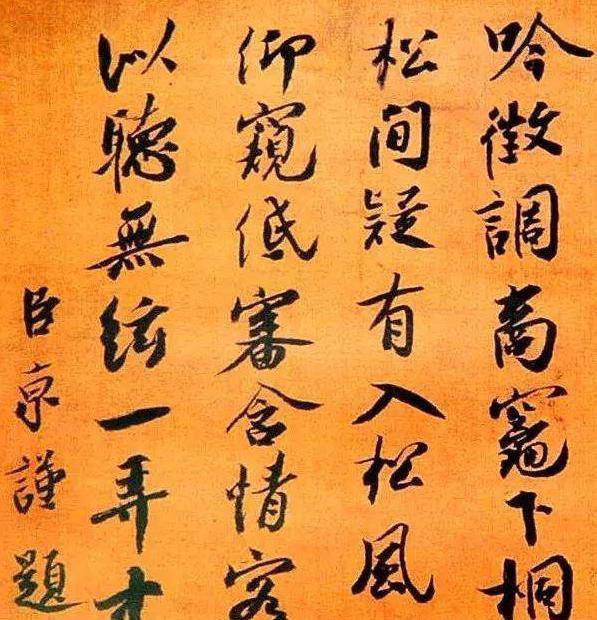 吟徵調商竈下桐
松間疑有入松風
仰窺低審含情客
以聽無絃一弄
臣京謹題